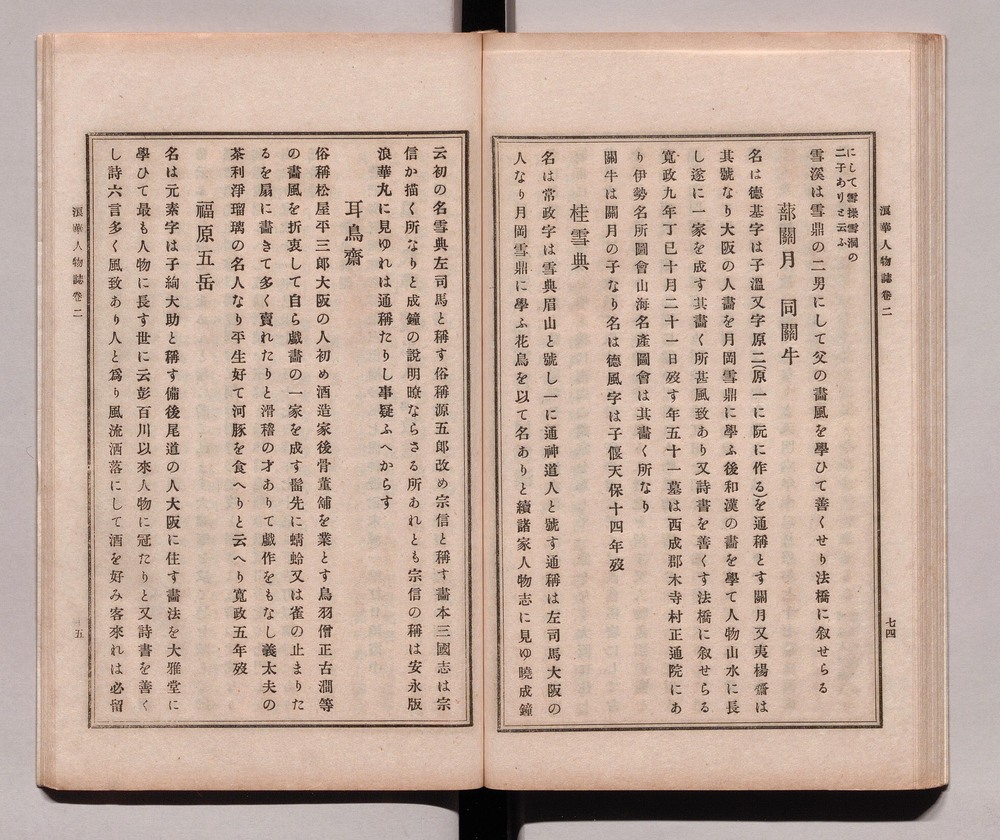 浪華人物誌卷二
七四
にして雪操雪澗の
二子ありと云ふ
雪溪は雪鼎の二男にして父の畵風を學ひて善くせり法橋に叙せらる
蔀關月　同關牛
名は德基字は子溫又字原二(原一に阮に作る)を通稱とす關月又夷楊齋は
其號なり大阪の人畵を月岡雪鼎に學ふ後和漢の畵を學て人物山水に長
し遂に一家を成す其畵く所甚風致あり又詩書を善くす法橋に叙せらる
寬政九年丁巳十月二十一日歿す年五十一墓は西成郡木寺村正通院にあ
り伊勢名所圖會山海名產圖會は其畵く所なり
關牛は關月の子なり名は德風字は子偃天保十四年歿
桂雪典
名は常政字は雪典眉山と號し一に通神道人と號す通稱は左司馬大阪の
人なり月岡雪鼎に學ふ花鳥を以て名ありと續諸家人物志に見ゆ曉成鐘
云初の名雪典左司馬と稱す俗稱源五郎改め宗信と稱す畵本三國志は宗
信か描く所なりと成鐘の說明瞭ならさる所あれとも宗信の稱は安永版
浪華丸に見ゆれは通稱たりし事疑ふへからす
耳鳥齋
俗稱松屋平三郎大阪の人初め酒造家後骨董舖を業とす鳥羽僧正古澗等
の畵風を折衷して自ら戯畵の一家を成す髷先に蜻蛉又は雀の止まりた
るを扇に畵きて多く賣れたりと滑稽の才ありて戯作をもなし義太夫の
茶利淨瑠璃の名人なり平生好て河豚を食へりと云へり寬政五年歿
福原五岳
名は元素字は子絢大助と稱す備後尾道の人大阪に住す畵法を大雅堂に
學ひて最も人物に長す世に云彭百川以來人物に冠たりと又詩書を善く
し詩六言多く風致あり人と爲り風流洒落にして酒を好み客來れは必留
浪華人物誌卷二
五